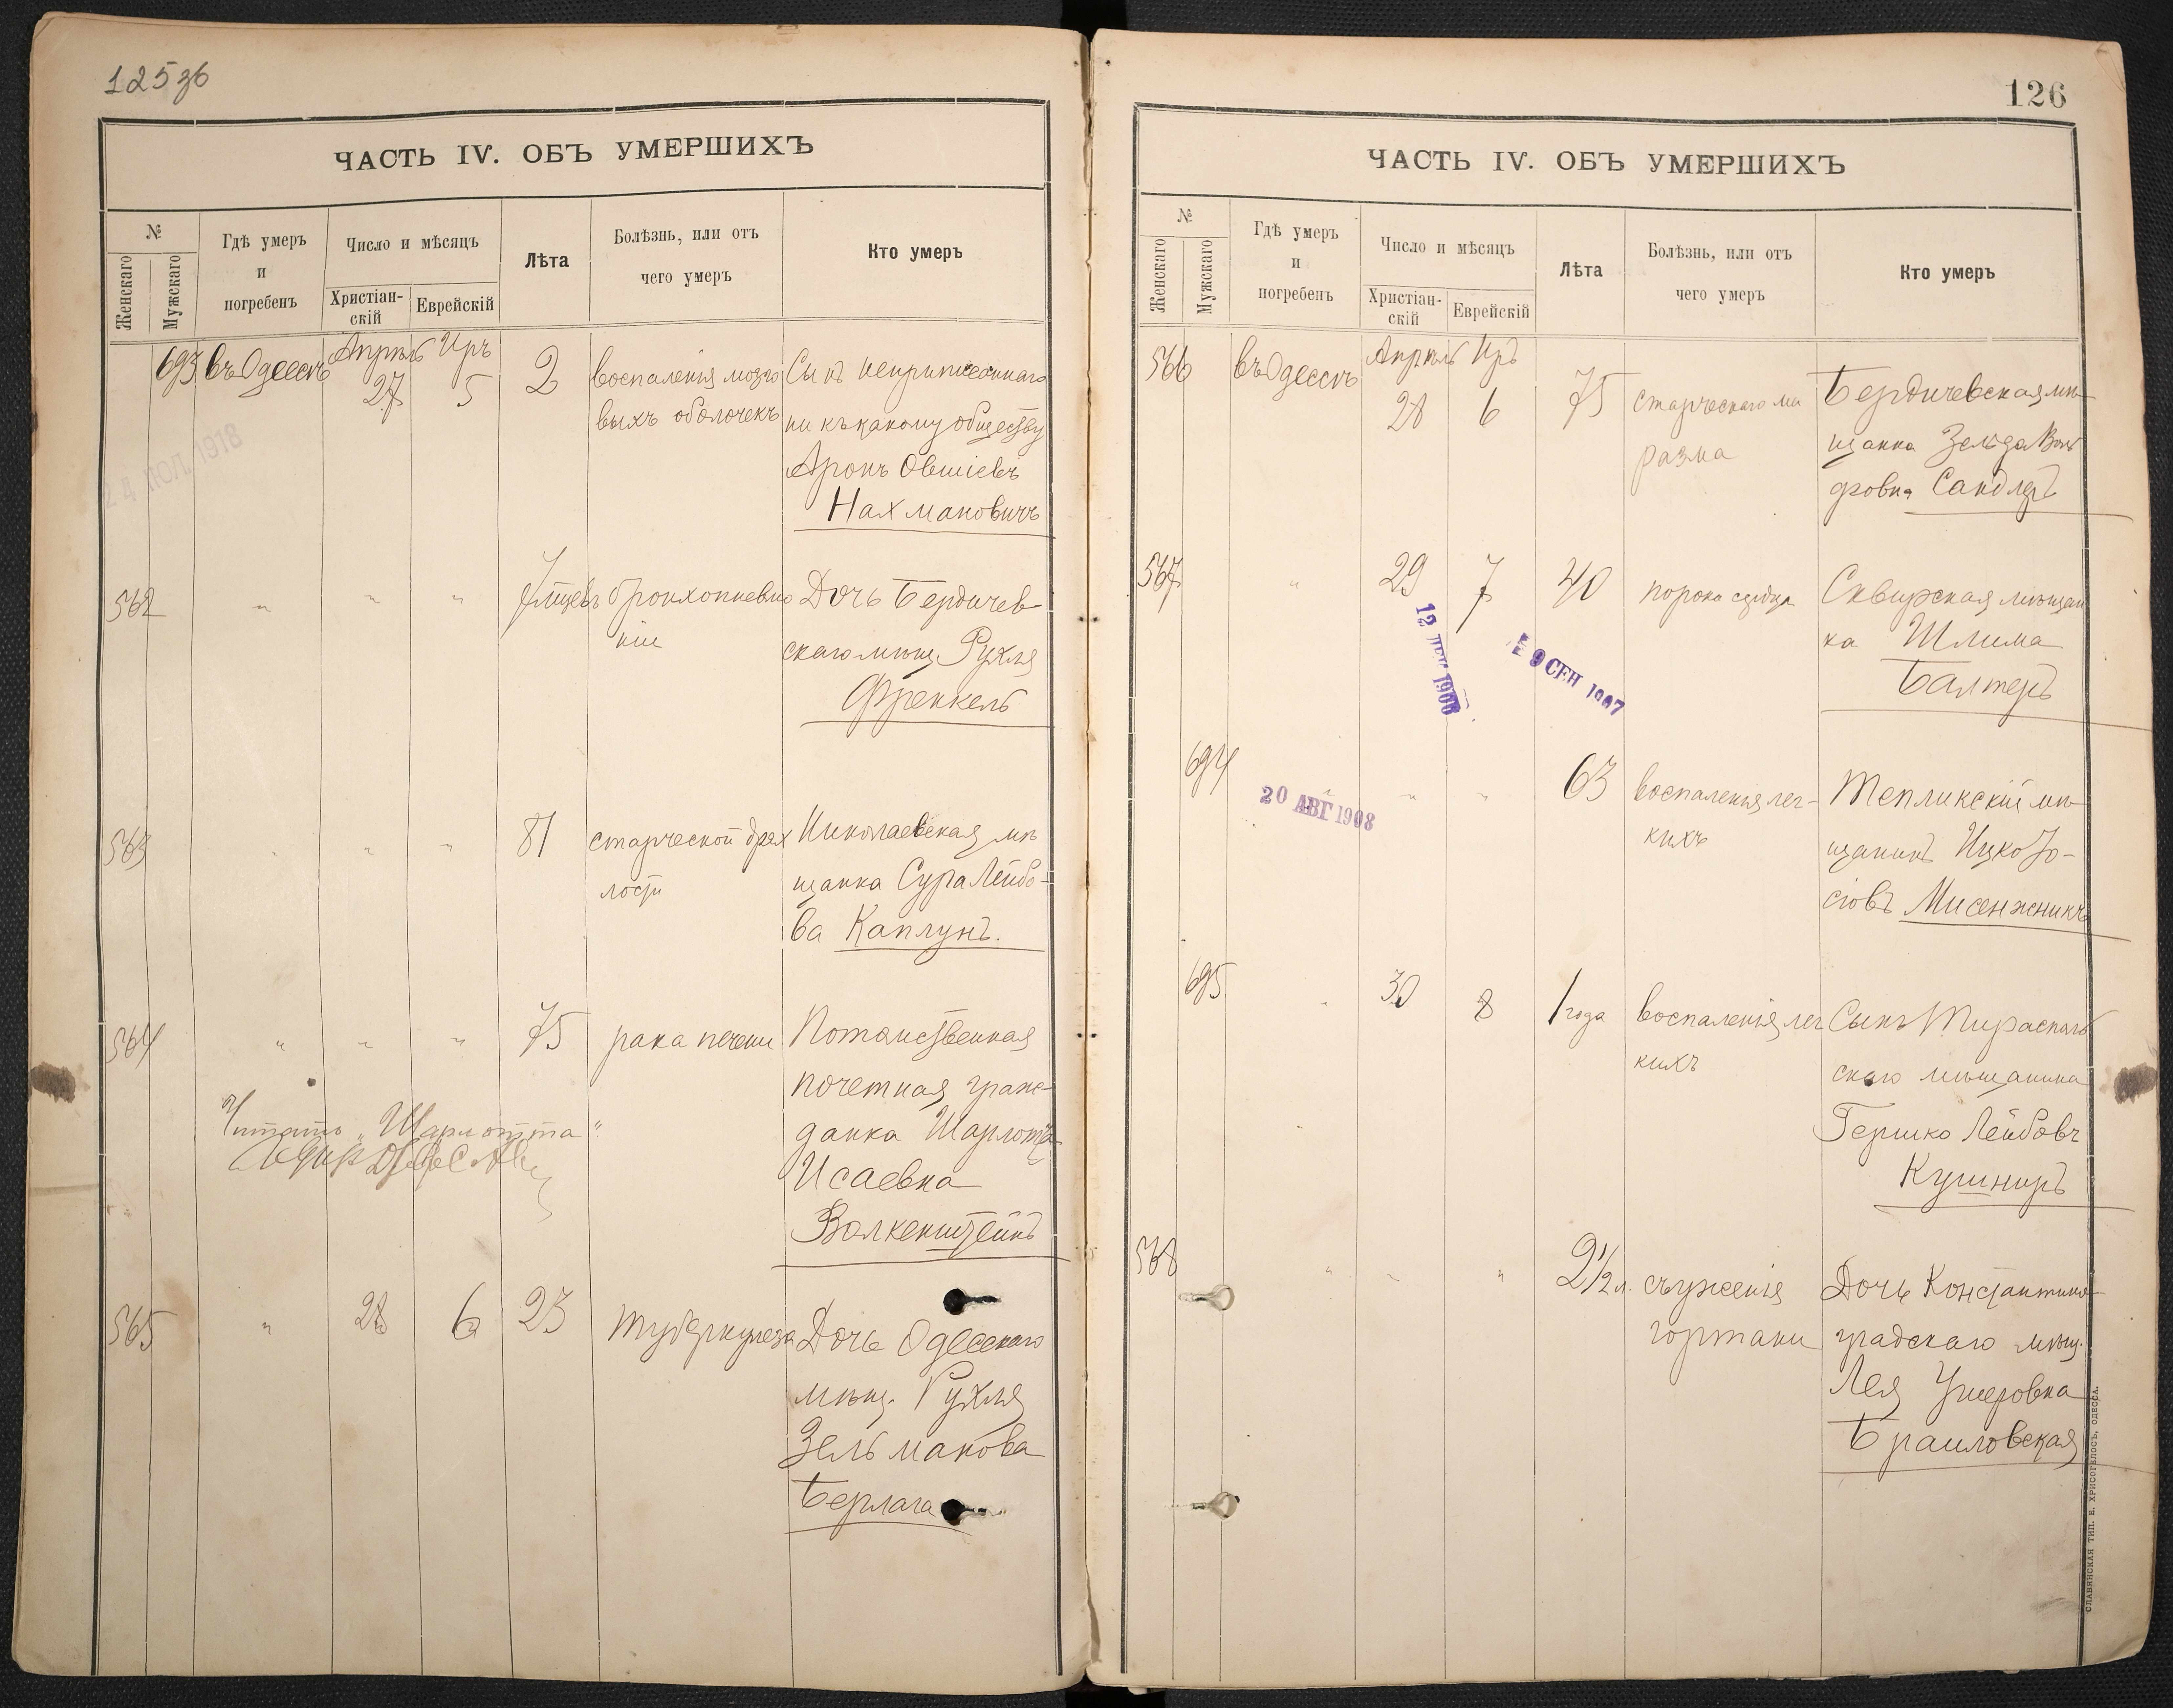 125 зб
ЧАСТЬ IV. ОБЪ УМЕРШИХЪ
№
Женскаго
Мужскаго
Гдѣ умеръ
и
погребенъ
Число и мѣсяцъ
Христіан-
скій
Еврейскій
Лѣта
Болѣзнь, или отъ
чего умеръ
Кто умеръ
693 въ Одессѣ Апрѣль 27 Иръ 5 2
воспаленія мозго
выхъ оболочекъ
Сынъ неприписаннаго
ни къ какому обществу
Аронъ Овшіевъ
Нахмановичъ
24 ІЮЛ. 1918
562 " " " 7 мѣсяц.
бронхопневмо
ніи
Дочь Бердичев-
скаго мѣщ. Рухля
Френкель
563 " " " 81
старческой дрях
лости
Николаевская мѣ
щанка Сура Лейбо-
ва Каплунъ.
564 " " " 75
рака печени
Потомственная
почетная граж-
данка Шарлота
Исаевна
Волкенштейнъ
Читать „Шарлотта"
565 " 28 6 23
туберкулеза
Дочь Одесскаго
мѣщ. Рухля
Зельманова
Берлага
126
ЧАСТЬ IV. ОБЪ УМЕРШИХЪ
№
Женскаго
Мужскаго
Гдѣ умеръ
и
погребенъ
Число и мѣсяцъ
Христіан-
скій
Еврейскій
Лѣта
Болѣзнь, или отъ
чего умеръ
Кто умеръ
566 въ Одессѣ Апрѣль 28 Иръ 6 75
старческаго ма
разма
Бердичевская мѣ-
щанка Зельда Воль
фовна Сандлеръ
567 " 29 7 40
порока сердца
Сквирская мѣщан
ка Шлима
Балтеръ
12 ДЕК 1906
СЕН 1907
694 " " " 63
воспаленія лег-
кихъ
Тепликскій мѣ-
щанинъ Ицко Іо-
сіовъ Мисенжникъ
20 АВГ 1908
695 " 30 8 1 года
воспаленія лег
кихъ
Сынъ Тираспаль
скаго мѣщанина
Гершко Лейбовъ
Кушниръ
568 " " " 2½ л.
съуженія
гортани
Дочь Константино-
градскаго мѣщ.
Лея Ушеровна
Браиловская
СЛАВЯНСКАЯ ТИП. Е. ХРИСОГЕЛОСЪ, ОДЕССА.